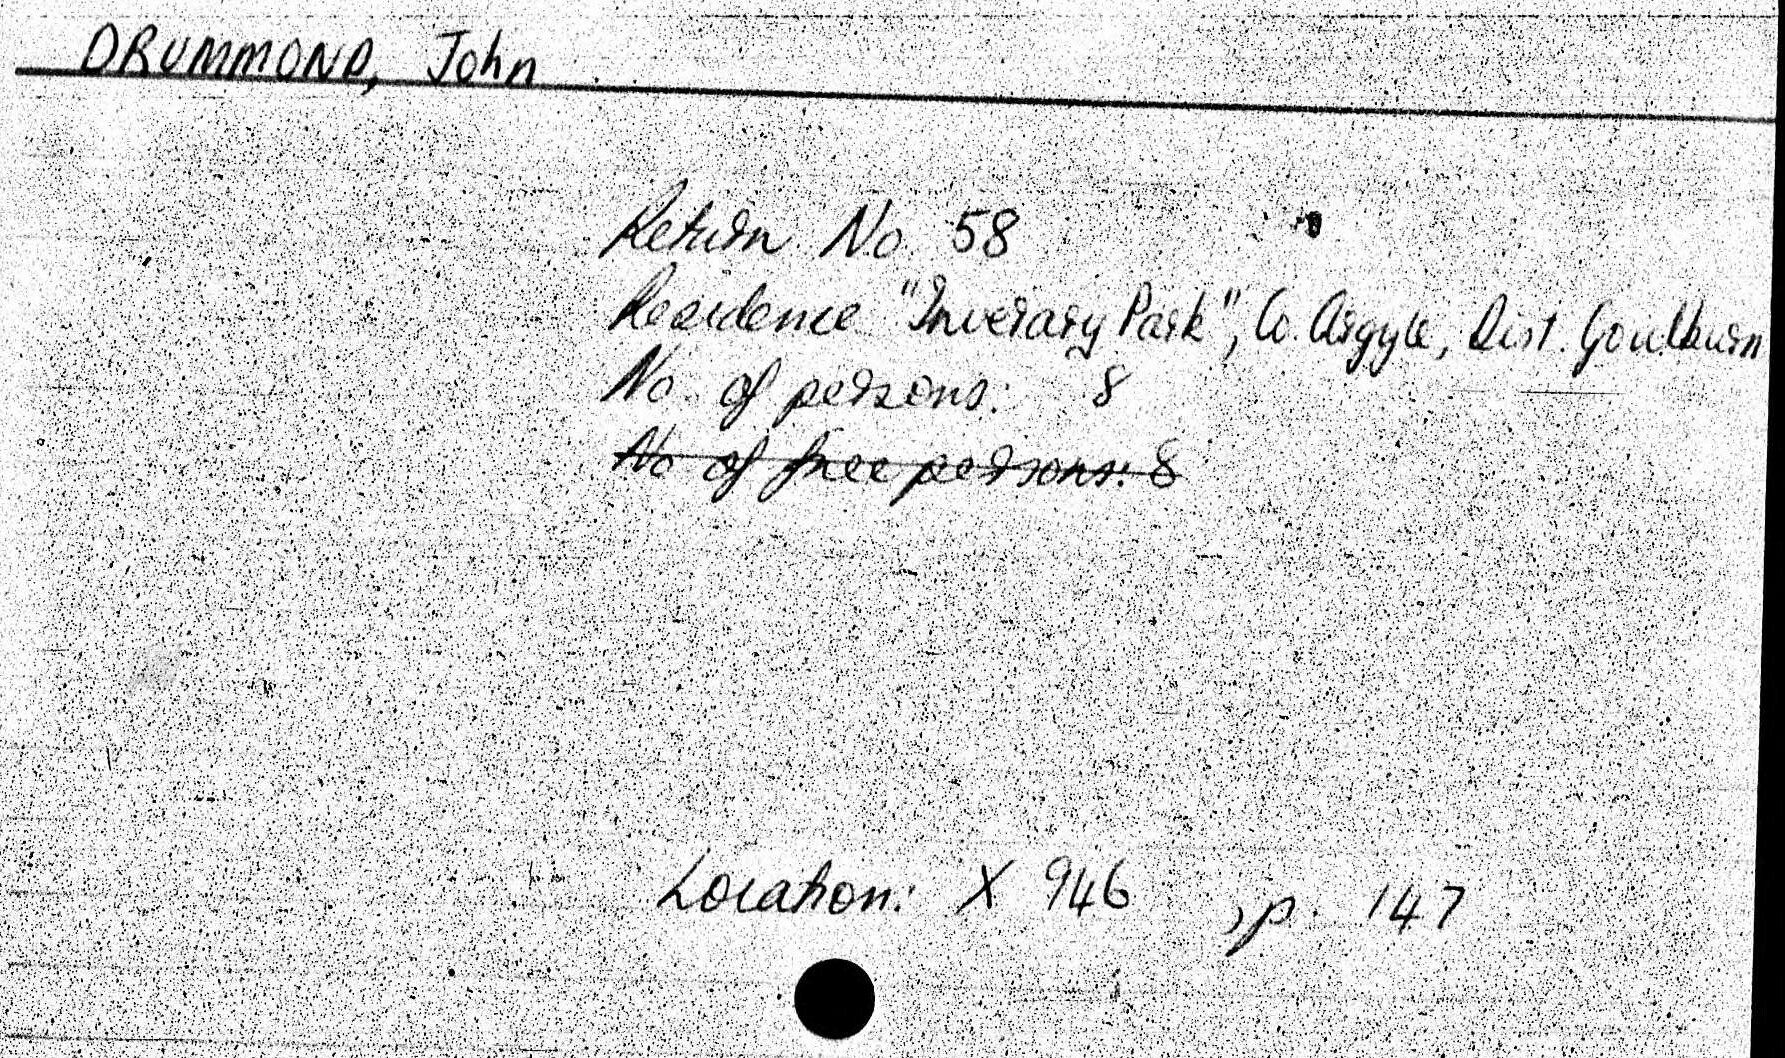 DRUMMOND, John
Return No. 58
Residence "Inverary Park", Co. Argyle, Dist. Goulburn
No. of persons: 8
No of free persons: 8
Location: X 946, p. 147